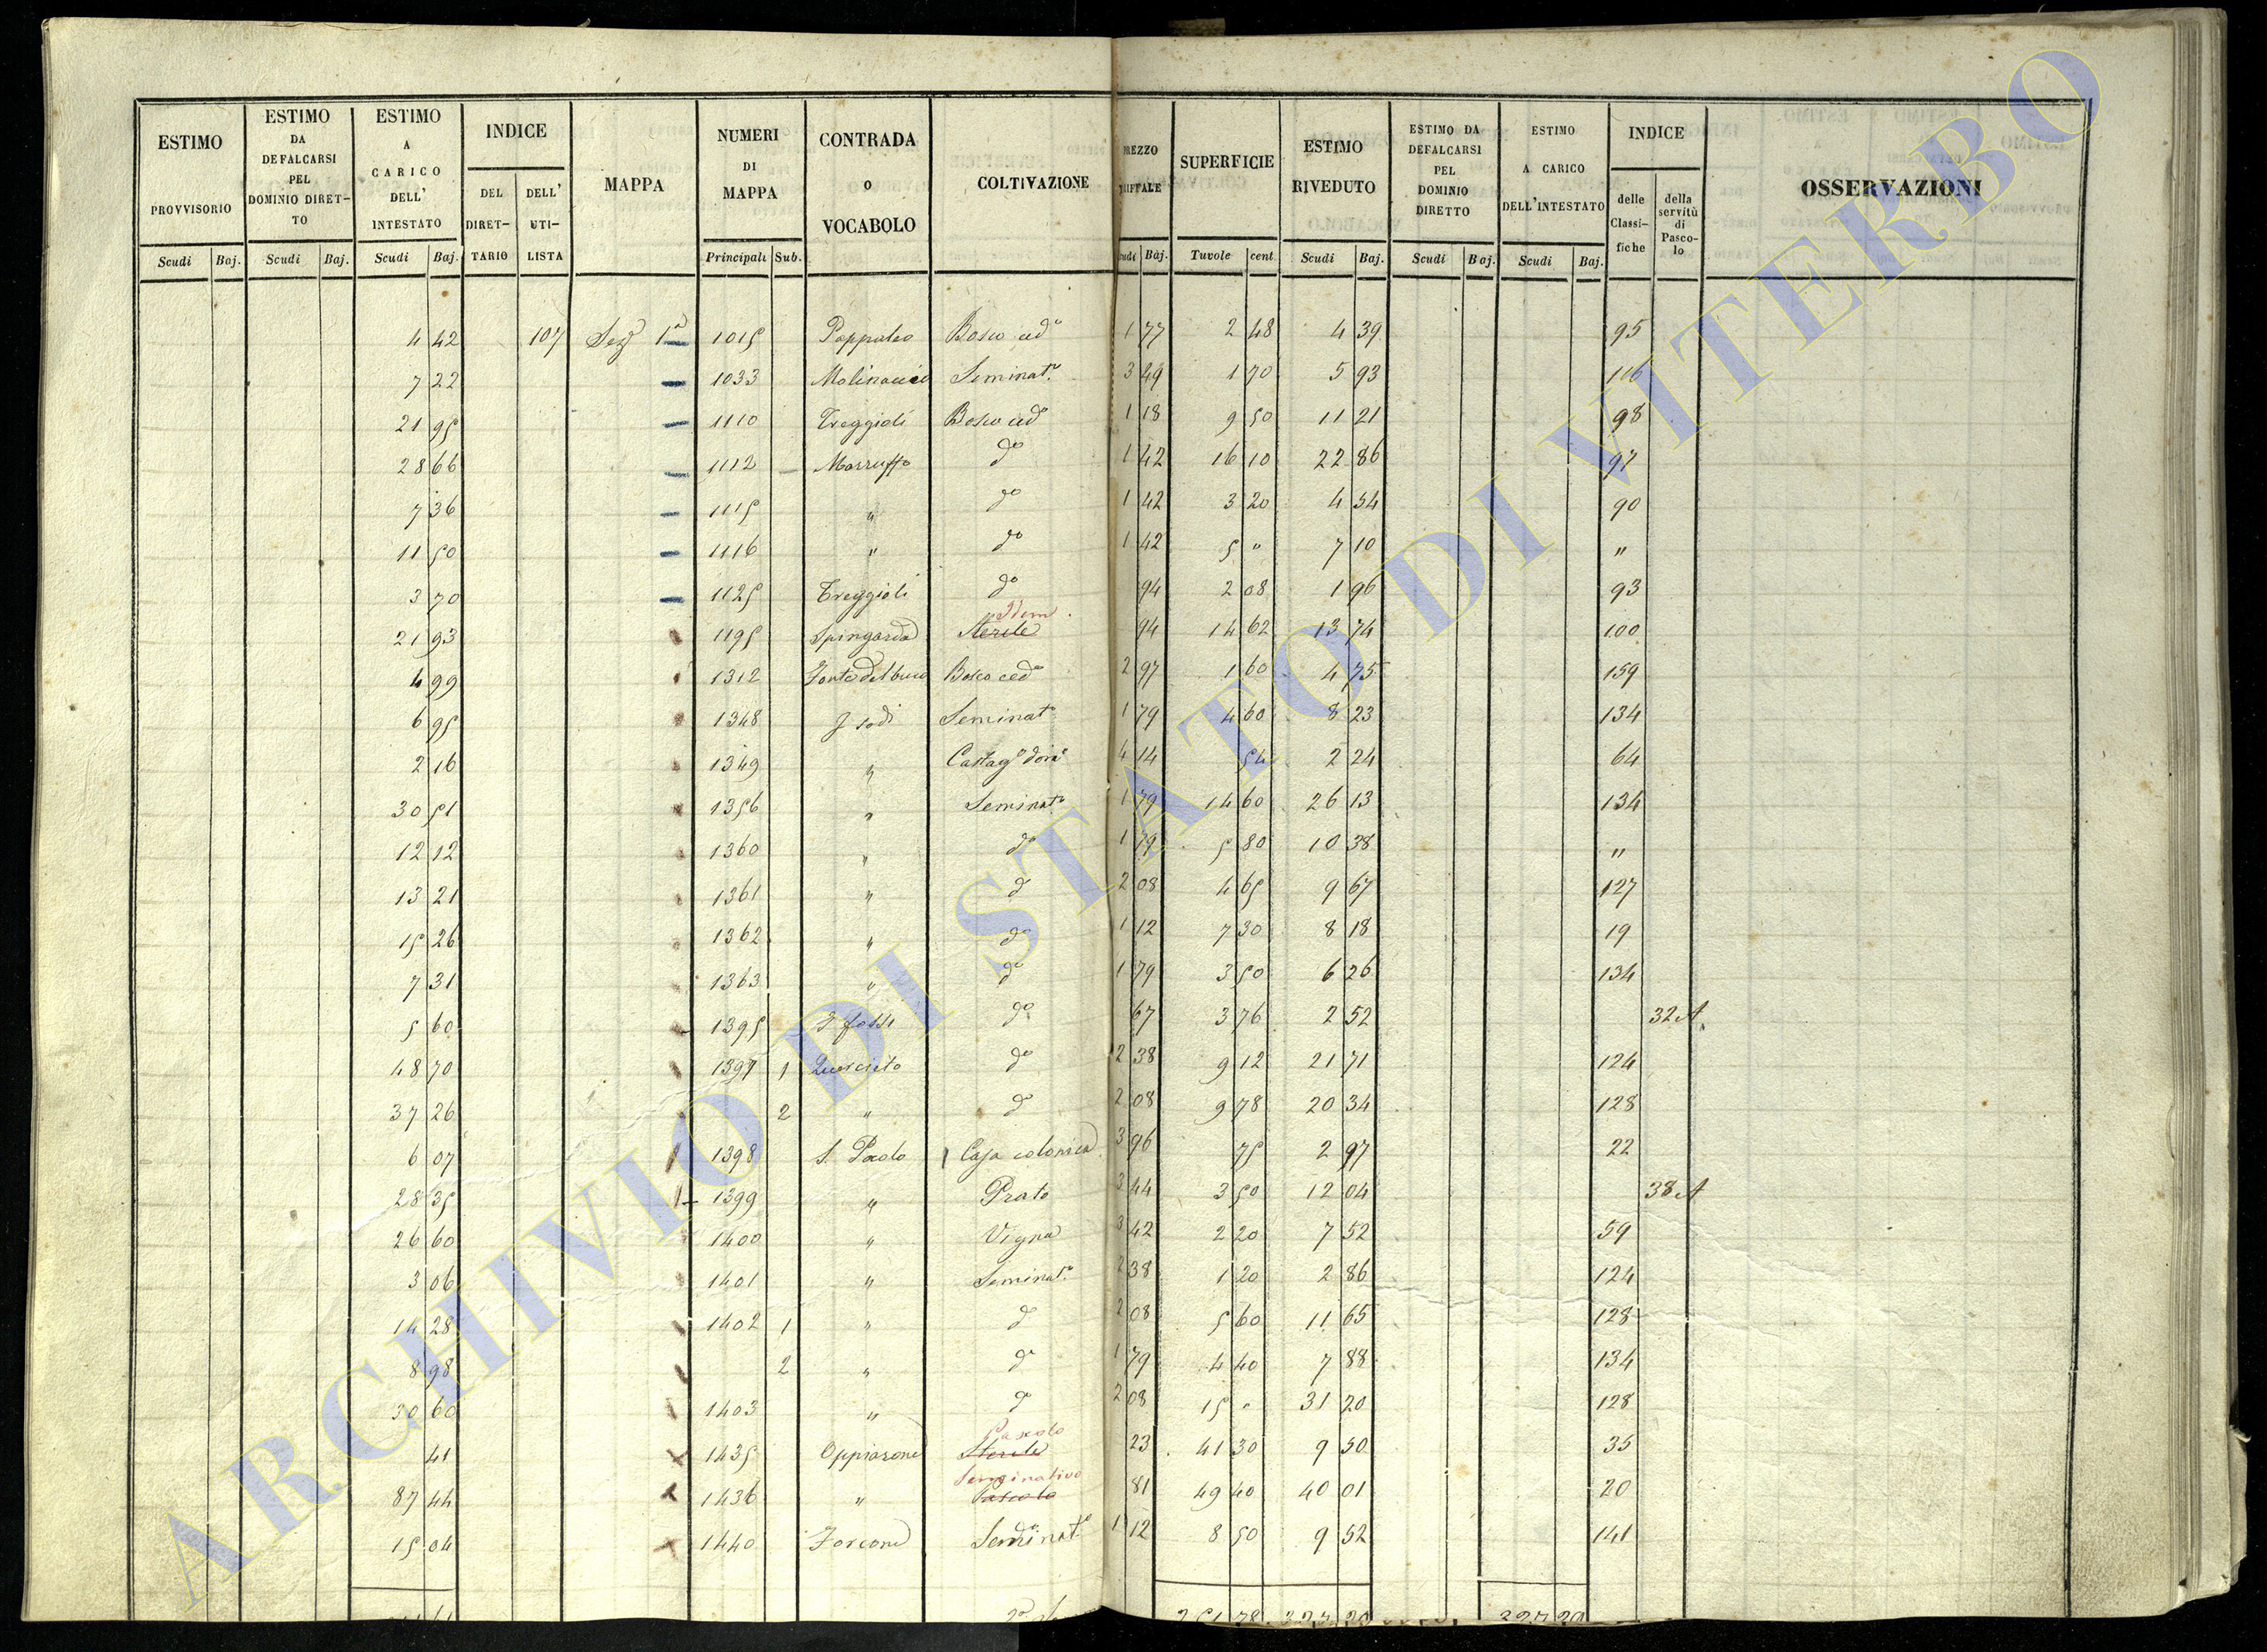 ESTIMO PROVVISORIO Scudi Baj.
ESTIMO DA DEFALCARSI PEL DOMINIO DIRET-TO Scudi Baj.
ESTIMO A CARICO DELL' INTESTATO Scudi Baj.
INDICE DEL DIRET-TARIO DELL' UTI-LISTA
MAPPA
NUMERI DI MAPPA Principali Sub.
CONTRADA O VOCABOLO
COLTIVAZIONE
PREZZO Baj.
SUPERFICIE Tavole cent.
ESTIMO RIVEDUTO Scudi Baj.
ESTIMO DA DEFALCARSI PEL DOMINIO DIRETTO Scudi Baj.
ESTIMO A CARICO DELL'INTESTATO Scudi Baj.
INDICE delle Classi-fiche della servitù di Pasco-lo
OSSERVAZIONI
4 42 107 Sez 1a 1015 Bosco ced° 1 77 2 48 4 39 95
7 22 1033 Molinaccio Seminat° 3 49 1 70 5 93 116
21 95 1110 Treggioli Bosco ced° 1 18 9 50 11 21 98
28 66 1112 Marruffo d° 1 42 16 10 22 86 97
7 36 1115 " d° 1 42 3 20 4 54 90
11 50 1116 " d° 1 42 5 " 7 10 "
3 70 1125 Treggioli d° 94 2 08 1 96 93
Idem
21 93 1195 Spingarda Sterile 94 14 62 13 74 100
4 99 1312 Fonte del buco Bosco ced° 2 97 1 60 4 75 159
6 95 1348 I sodi Seminat° 1 79 4 60 8 23 134
2 16 1349 " Castag° 4 14 54 2 24 64
30 51 1356 " Seminat° 1 79 14 60 26 13 134
12 12 1360 " d° 1 79 5 80 10 38 "
13 21 1361 " d° 2 08 4 65 9 67 127
15 26 1362 " d° 1 12 7 30 8 18 19
7 31 1363 " d° 1 79 3 50 6 26 134
5 60 1395 I fossi d° 67 3 76 2 52 32 A
48 70 1397 1 Querciito d° 2 38 9 12 21 71 124
37 26 2 " d° 2 08 9 78 20 34 128
6 07 1398 S. Paolo Casa colonica 3 96 75 2 97 22
28 35 1399 " Prato 3 44 3 50 12 04 38 A
26 60 1400 " Vigna 3 42 2 20 7 52 59
3 06 1401 " Seminat° 2 38 1 20 2 86 124
14 28 1402 1 " d° 2 08 5 60 11 65 128
8 98 2 " d° 1 79 4 40 7 88 134
30 60 1403 " d° 2 08 15 " 31 20 128
Pascolo
41 1435 Oppiarone Sterile 23 41 30 9 50 35
Seminativo
87 44 1436 " Pascolo 81 49 40 40 01 20
15 04 1440 Forcone Seminat° 1 12 8 50 9 52 141
ARCHIVIO DI STATO DI VITERBO